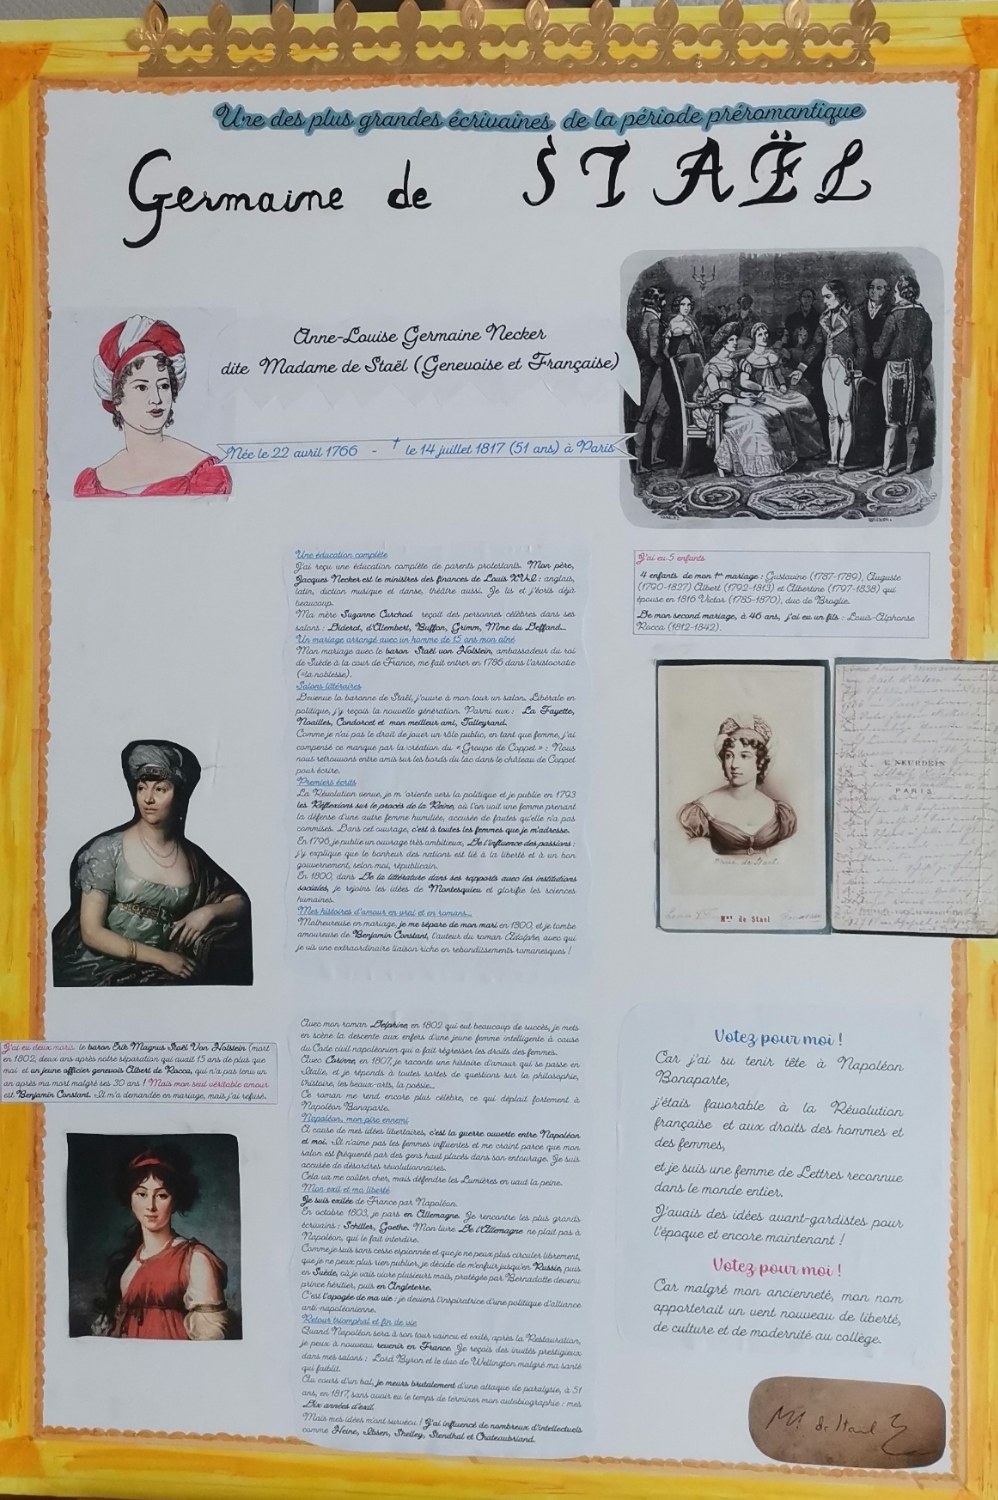 Une des plus grandes écrivaines de la période préromantique
Germaine de STAËL
Anne-Louise Germaine Necker
dite Madame de Staël (Genevoise et Française)
Née le 22 avril 1766 - † le 14 juillet 1817 (51 ans) à Paris
Une éducation complète
J'ai reçu une éducation complète de parents protestants. Mon père,
Jacques Necker est le ministres des finances de Louis XVI : anglais,
latin, diction musique et danse, théâtre aussi. Je lis et j'écris déjà
beaucoup.
Ma mère Suzanne Curchod reçoit des personnes célèbres dans ses
salons : Diderot, d'Alembert, Buffon, Grimm, Mme du Deffand...
Un mariage arrangé avec un homme de 15 ans mon aîné
Mon mariage avec le baron Staël von Holstein, ambassadeur du roi
de Suède à la cour de France, me fait entrer en 1786 dans l'aristocratie
(=la noblesse).
Salons littéraires
Devenue la baronne de Staël, j'ouvre à mon tour un salon. Libérale en
politique, j'y reçois la nouvelle génération. Parmi eux : La Fayette,
Noailles, Condorcet et mon meilleur ami, Talleyrand.
Comme je n'ai pas le droit de jouer un rôle public, en tant que femme, j'ai
compensé ce manque par la création du « Groupe de Coppet » : Nous
nous retrouvons entre amis sur les bords du lac dans le château de Coppet
pour écrire.
Premiers écrits
La Révolution venue, je m'oriente vers la politique et je publie en 1793
les Réflexions sur le procès de la Reine, où l'on voit une femme prenant
la défense d'une autre femme humiliée, accusée de fautes qu'elle n'a pas
commises. Dans cet ouvrage, c'est à toutes les femmes que je m'adresse.
En 1796, je publie un ouvrage très ambitieux, De l'influence des passions :
j'y explique que le bonheur des nations est lié à la liberté et à un bon
gouvernement, selon moi, républicain.
En 1800, dans De la littérature dans ses rapports avec les institutions
sociales, je rejoins les idées de Montesquieu et glorifie les sciences
humaines.
Mes histoires d'amour en vrai et en romans...
Malheureuse en mariage, je me sépare de mon mari en 1800, et je tombe
amoureuse de Benjamin Constant, l'auteur du roman Adolphe, avec qui
je vis une extraordinaire liaison riche en rebondissements romanesques !
J'ai eu 5 enfants
4 enfants de mon 1er mariage : Gustavine (1787-1789), Auguste
(1790-1827) Albert (1792-1813) et Albertine (1797-1838) qui
épouse en 1816 Victor (1785-1870), duc de Broglie.
De mon second mariage, à 46 ans, j'ai eu un fils : Louis-Alphonse
Rocca (1812-1842).
E. NEURDEIN
PARIS
Mme de Stael
J'ai eu deux maris le baron Erik Magnus Staël Von Holstein (mort
en 1802, deux ans après notre séparation qui avait 15 ans de plus que
moi et un jeune officier genevois Albert de Rocca, qui n'a pas tenu un
an après ma mort malgré ses 30 ans ! Mais mon seul véritable amour
est Benjamin Constant. Il m'a demandée en mariage, mais j'ai refusé.
Avec mon roman Delphine, en 1802 qui eut beaucoup de succès, je mets
en scène la descente aux enfers d'une jeune femme intelligente à cause
du Code civil napoléonien qui a fait régresser les droits des femmes.
Avec Corinne, en 1807, je raconte une histoire d'amour qui se passe en
Italie, et je réponds à toutes sortes de questions sur la philosophie,
l'histoire, les beaux-arts, la poésie...
Ce roman me rend encore plus célèbre, ce qui déplait fortement à
Napoléon Bonaparte.
Napoléon, mon pire ennemi
A cause de mes idées libertaires, c'est la guerre ouverte entre Napoléon
et moi. Il n'aime pas les femmes influentes et me craint parce que mon
salon est fréquenté par des gens haut placés dans son entourage. Je suis
accusée de désordres révolutionnaires.
Cela va me coûter cher, mais défendre les Lumières en vaut la peine.
Mon exil et ma liberté
Je suis exilée de France par Napoléon.
En octobre 1803, je pars en Allemagne. Je rencontre les plus grands
écrivains : Schiller, Goethe. Mon livre De l'Allemagne ne plaît pas à
Napoléon, qui le fait interdire.
Comme je suis sans cesse espionnée et que je ne peux plus circuler librement,
que je ne peux plus rien publier, je décide de m'enfuir jusqu'en Russie, puis
en Suède, où je vais vivre plusieurs mois, protégée par Bernadotte devenu
prince héritier, puis en Angleterre.
C'est l'apogée de ma vie : je deviens l'inspiratrice d'une politique d'alliance
anti-napoléonienne.
Retour triomphal et fin de vie
Quand Napoléon sera à son tour vaincu et exilé, après la Restauration,
je peux à nouveau revenir en France. Je reçois des invités prestigieux
dans mes salons : Lord Byron et le duc de Wellington malgré ma santé
qui faiblit.
Au cours d'un bal, je meurs brutalement d'une attaque de paralysie, à 51
ans, en 1817, sans avoir eu le temps de terminer mon autobiographie : mes
Dix années d'exil.
Mais mes idées m'ont survécu ! J'ai influencé de nombreux d'intellectuels
comme Heine, Ibsen, Shelley, Stendhal et Chateaubriand.
Votez pour moi !
Car j'ai su tenir tête à Napoléon
Bonaparte,
j'étais favorable à la Révolution
française et aux droits des hommes et
des femmes,
et je suis une femme de Lettres reconnue
dans le monde entier.
J'avais des idées avant-gardistes pour
l'époque et encore maintenant !
Votez pour moi !
Car malgré mon ancienneté, mon nom
apporterait un vent nouveau de liberté,
de culture et de modernité au collège.
de Stael